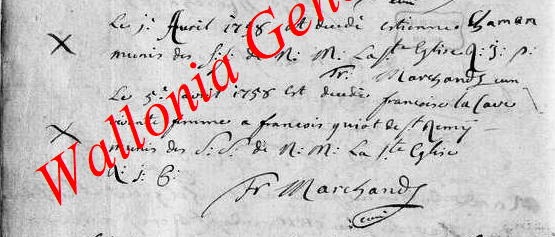 Le j.r Avril 1758 est decédé estienne Chaman
munis des S: S: de N: M: La S.te Eglise R: J: P:
Fr: Marchands curé
Le 5.e avril 1758 est decedé francoise la Cave
vivante femme a francois guiot de St Remy
munis des S: S: de N: M: La S.te Eglise
R: J: P:
Fr Marchands
curé
Wallonia Gen